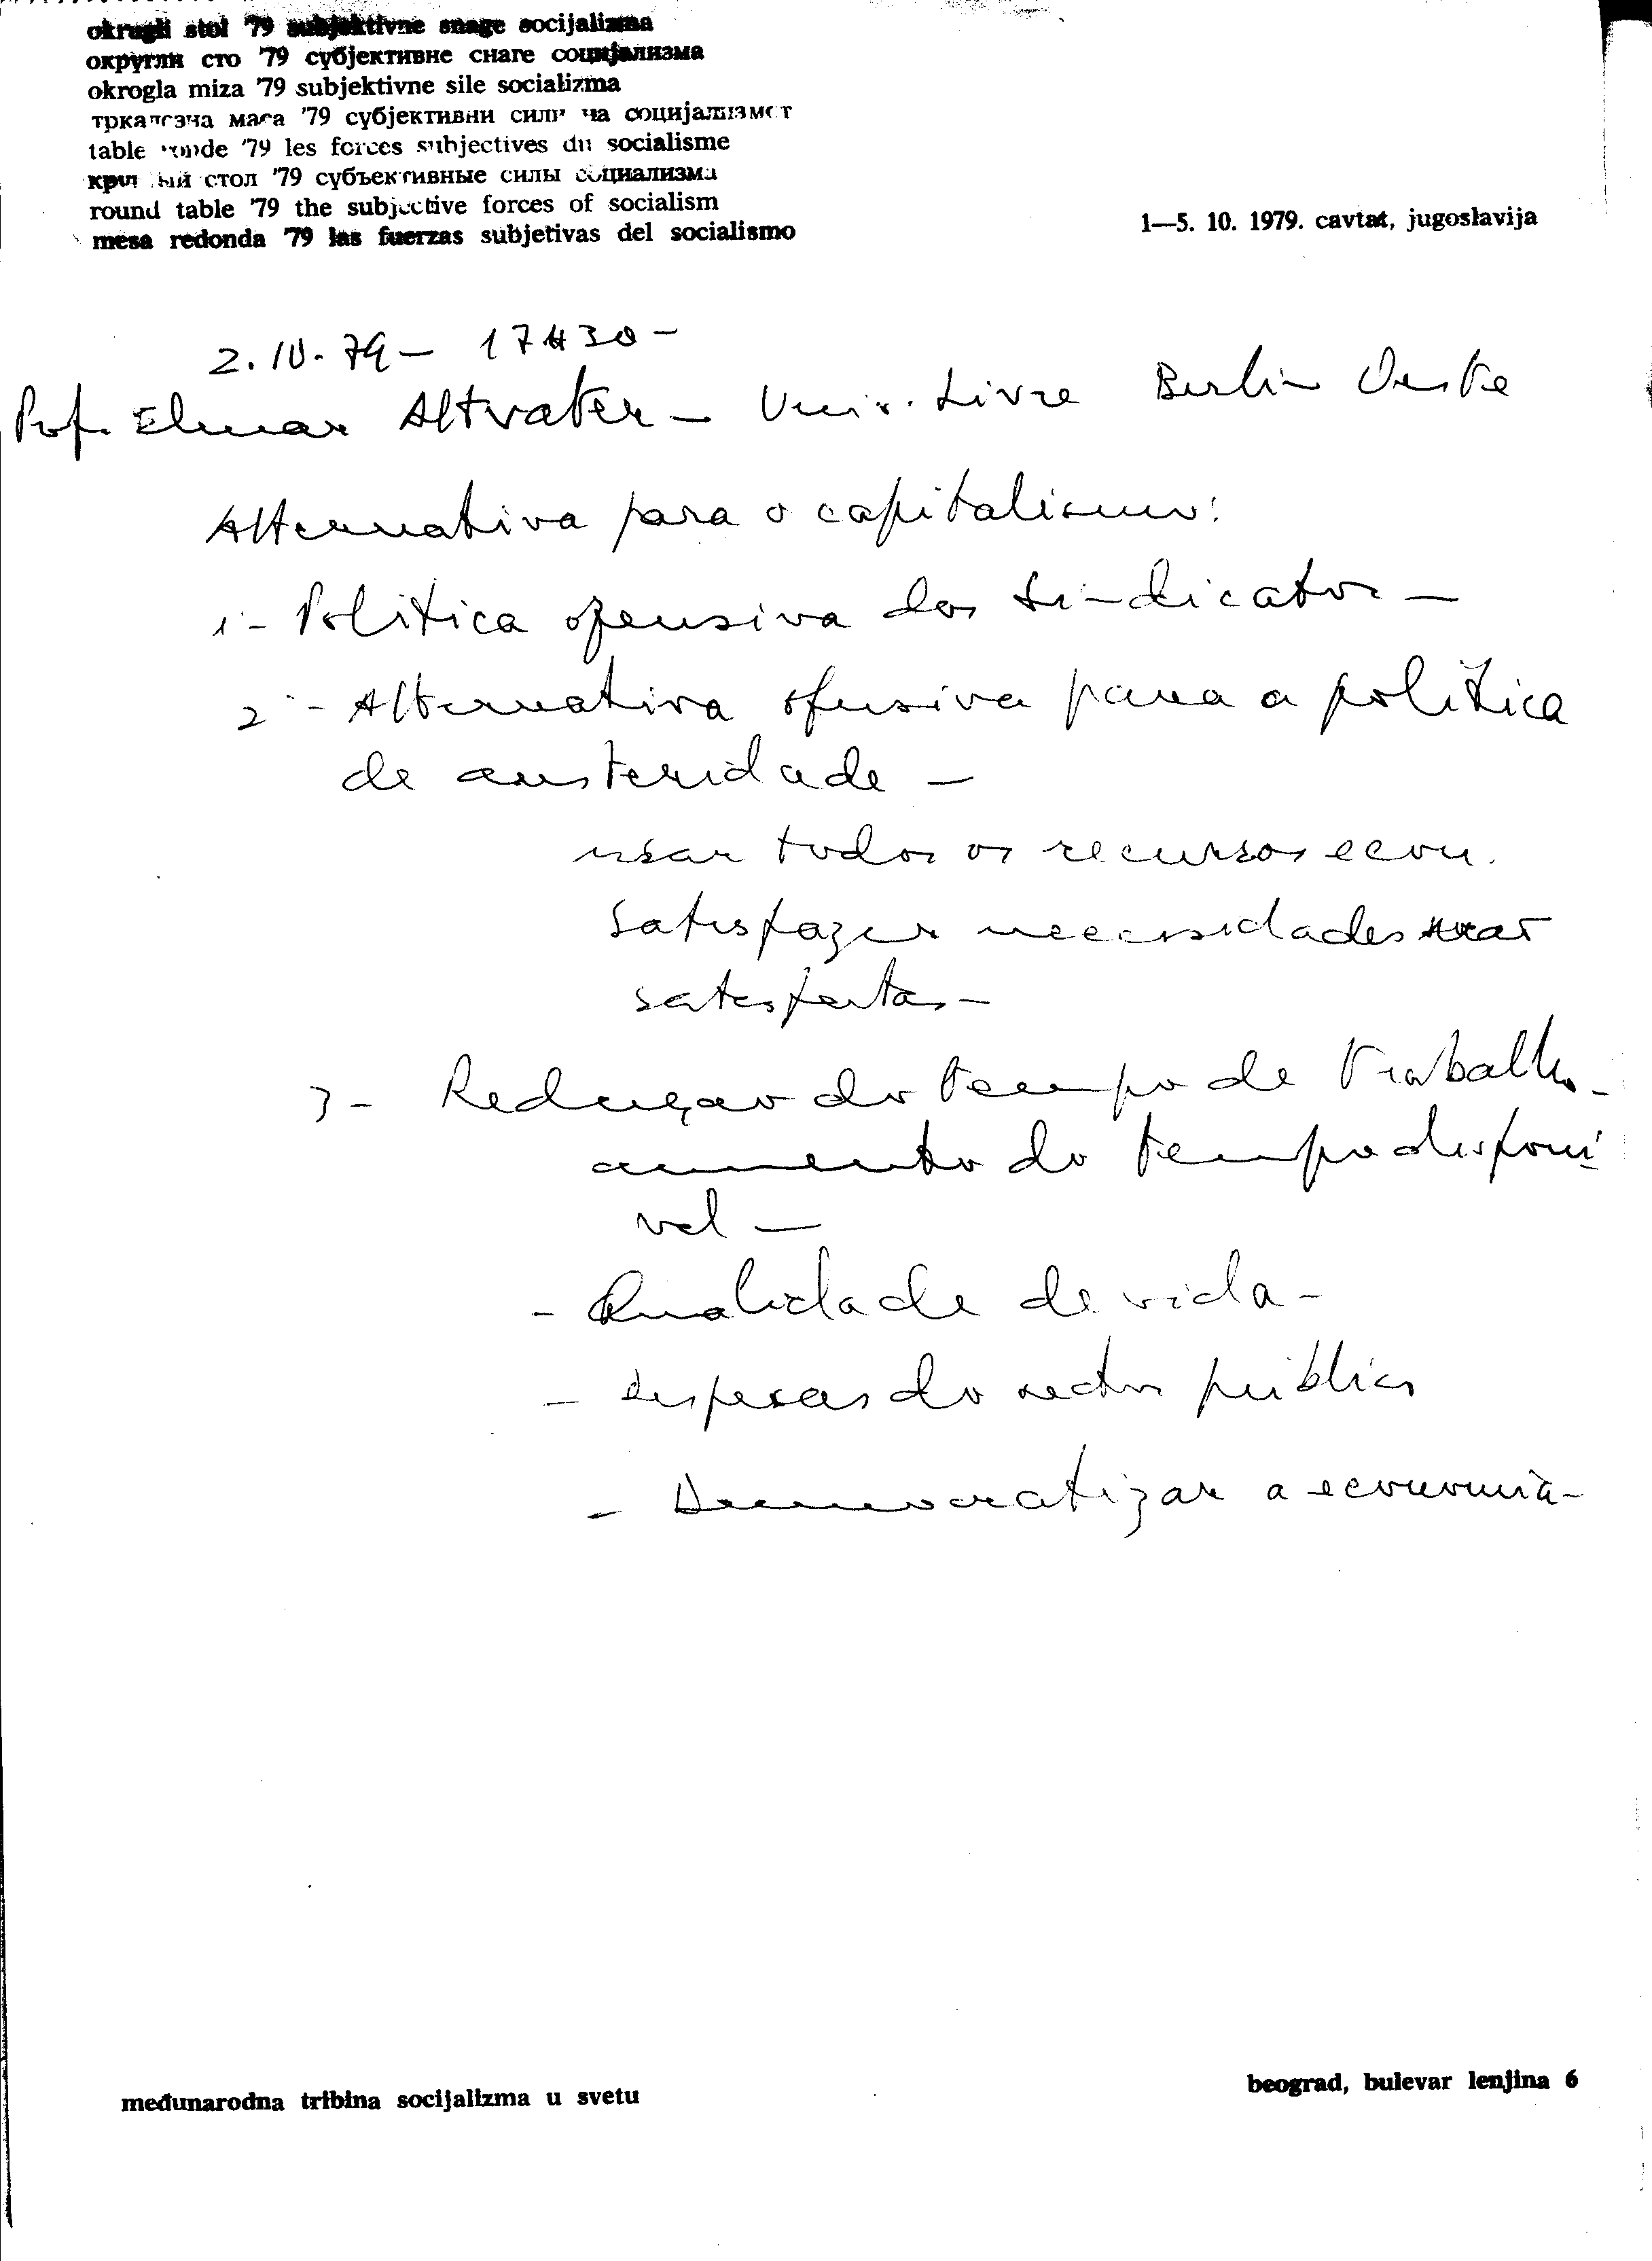 okrugli stol '79 subjektivne snage socijalizma
округли сто '79 субјективне снаге социјализма
okrogla miza '79 subjektivne sile socializma
тркалезна маса '79 субјективни сили на социјализмот
table ronde '79 les forces subjectives du socialisme
круглый стол '79 субъективные силы социализма
round table '79 the subjective forces of socialism
mesa redonda '79 las fuerzas subjetivas del socialismo
1—5. 10. 1979. cavtat, jugoslavija
2.10.79 — 17H30 —
Prof. Elmar Altvater — Univ. Livre Berlin Oeste
Alternativa para o capitalismo:
1 - Política ofensiva dos sindicatos —
2 - Alternativa ofensiva para a política
de austeridade —
usar todos os recursos econ.
satisfazer necessidades
satisfeitas —
3 - Redução do tempo de trabalho -
aumento do tempo disponí
vel —
- Qualidade de vida -
- despesas do sector público
- Democratizar a economia -
međunarodna tribina socijalizma u svetu
beograd, bulevar lenjina 6